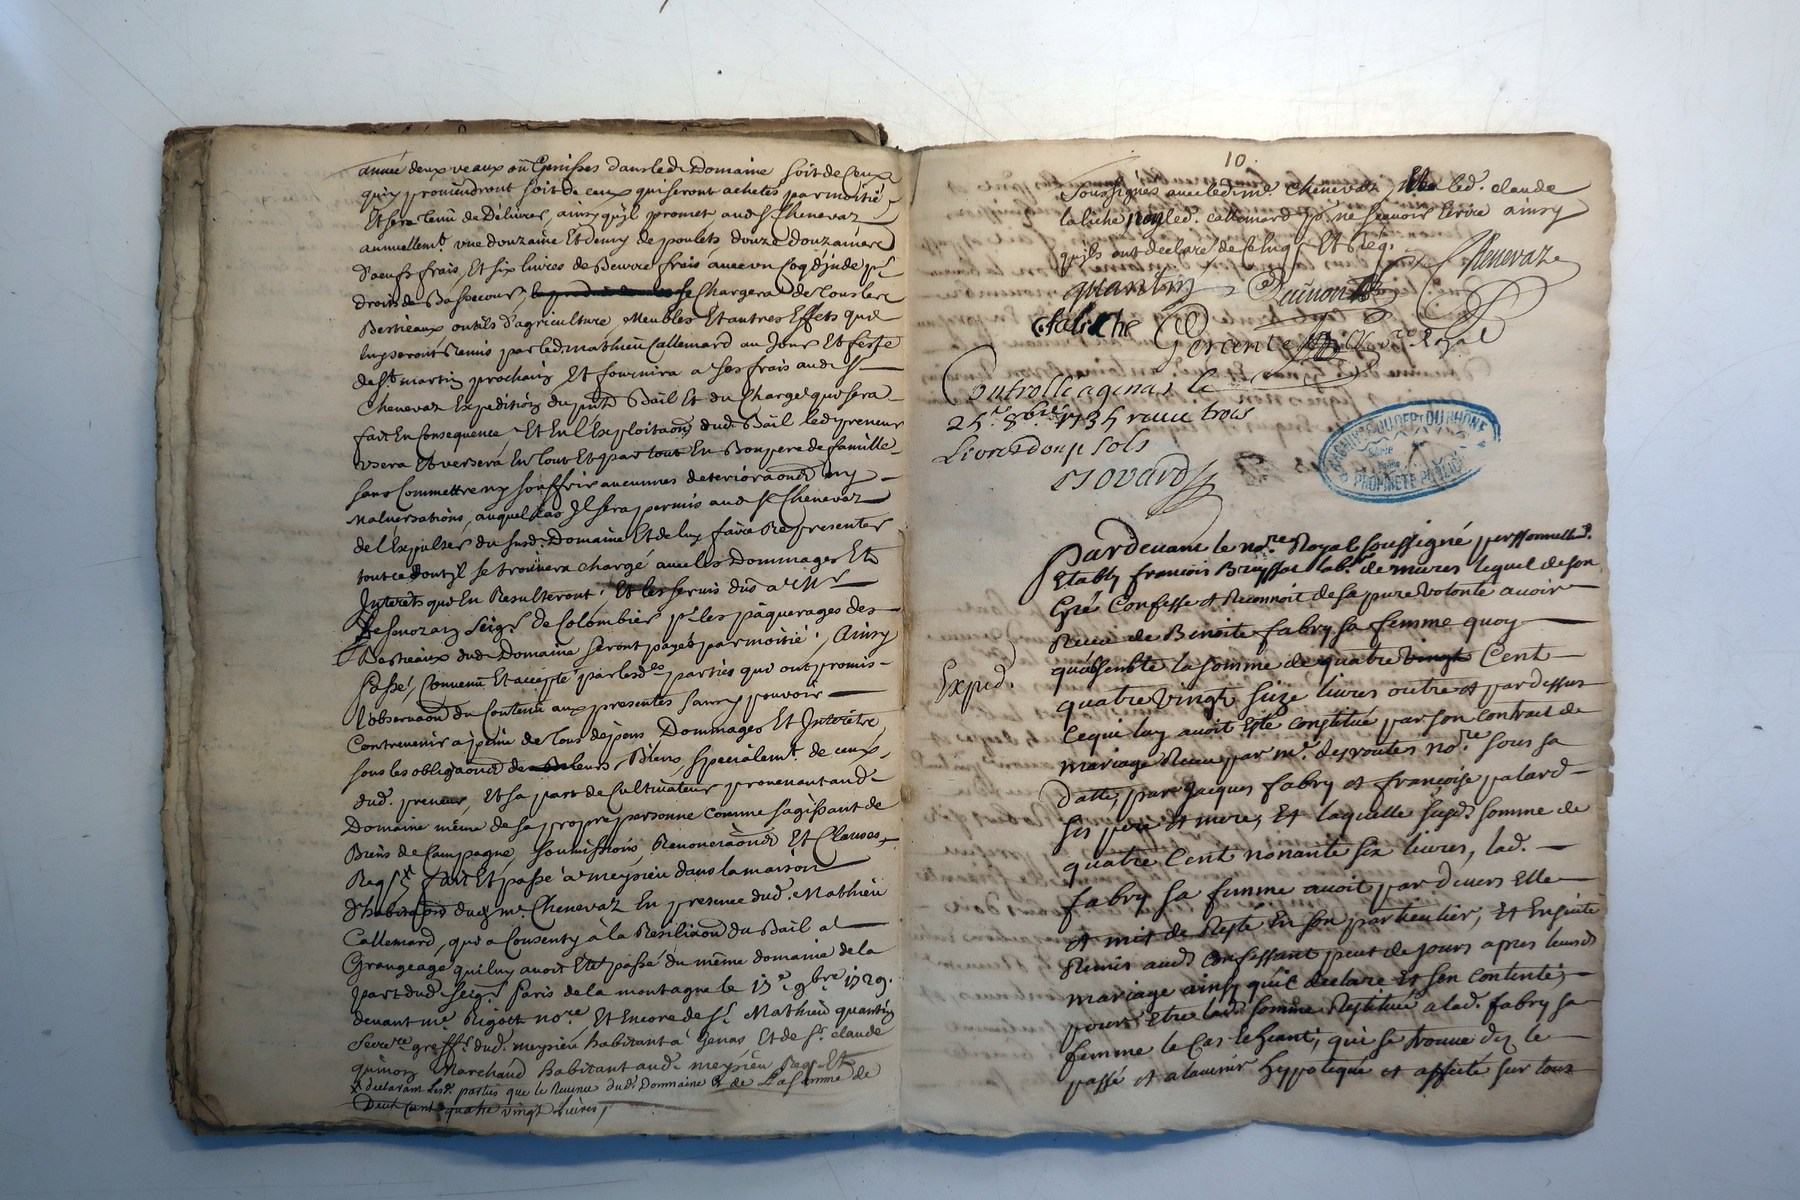 année deux veaux ou Genisses dans led. Domaine soit de Ceux
quiy proviendront soit de ceux qui seront achetés par moitié,
Et sera tenu de Délivrer, ainsy qu'jl promet aud. Sr Chenevaz
annuellemt. vne douzaine Et demy de poulets douze douzaines
d'oeufs frais, Et six livres de Beurre frais avec vn Coq d'jnde pr.
droit de Bassecour, se Chargera de tous les
Bestieaux outils d'agriculture, Meubles Et autres Effets que
luy seront Remis par led. mathieu Callemard au Jour Et feste
de St. martin prochain Et fournira a ses frais aud. Sr
Chenevaz Expedition du pnt. Bail Et du Chargé qui sera
fait En Consequence, Et En l'Exploitaon dud. Bail led. preneur
vsera Et versera En tout Et par tout En Bon pere de famille
sans Commettre ny souffrir aucunnes deterioraons ny
malversations, auquel cas Jl sera permis aud. Sr Chenevaz
de l'Expulser du susd. Domaine Et de luy faire Representer
tout ce dont jl se trouvera chargé avec les Dommages Et
Jnterets qui En Resulteront. Et les servis dus a Mr
de Senozan Seigr. de Colombier pr. les pâquerages des
Bestieaux dud. Domaine seront payés par moitié. Ainsy
passé, Convenu Et accepté par lesd. parties qui ont promis
l'observaon du Contenu aux presentes sans y pouvoir
Contrevenir a peine de tous dépens Dommages Et Jnterêts
sous les obligaons de leurs Biens, specialemt. de ceux
dud. preneur, Et sa part de Cultivateur provenant aud.
Domaine même de sa propre personne comme s'agissant de
Biens de Campagne, soumissions, Renonciaons Et Clauses,
Reqs. fait Et passé a meysieu dans la maison
d'habitaon dud. mr. Chenevaz En presence dud. Mathieu
Callemard, qui a Consenty à la Resiliaon du Bail a
Grangeage qui luy avoit Eté passé du même domaine de la
part dud. Seigr. Paris de la montagne le 15e 9bre 1729.
devant me. Rigoth nore Et Encore de Sr. Mathieu quantin
Secrere greffr. dud. meysieu habitant a Genas Et de Sr. claude
quinon Marchand habitant aud. meysieu Req. Et
declarant lesd. parties que le Revenu dud. Dommaine Et de La somme de
Deux Cent quatre vingt Livres,
10.
Soussignés avec led. me chenevaz led. claude
labiche non led. callemard pr. ne sçavoir Ecrire ainsy
qu'ils ont declaré de ce Enquis Et Req.
Chenevaz
quantin Quinon
Clabiche Gerente Nore Royal
Controllé a genas le
25e 8bre 1735 reçu trois
Livres douze sols
Jovard
Pardevant le nore. Royal soussigné personnellt.
Etably francois Bruyssat labr. de mures lequel de son
Gré Confesse et Reconnoit de sa pure volonté avoir
Receu de Benoite fabry sa femme quoy
qu'absente la somme de quatre vingt Cent
Exped.
quatre vingt seize livres outre et par dessus
ce qui luy avoit esté constitué par son contrait de
mariage Receu par me. desvoutes nore. sous sa
datte, par Jacques fabry et francoise palard
ses pere et mere, Et laquelle susd. somme de
quatre Cent nonante six livres, lad.
fabry sa femme avoit par devers Elle
et mis de Resté En son particulier, Et Ensuite
Remis aud. Confessant peut de jours apres leursd.
mariage ainsy qu'il declare Et s'en contente,
pour Etre lad. somme Restituée a lad. fabry sa
femme le Cas Echeant, qui se trouve dez le
passé et a l'avenir hypotequé et affecté sur tous
ARCHIVES DU DEPt DU RHÔNE
PROPRIÉTÉ PUBLIQUE